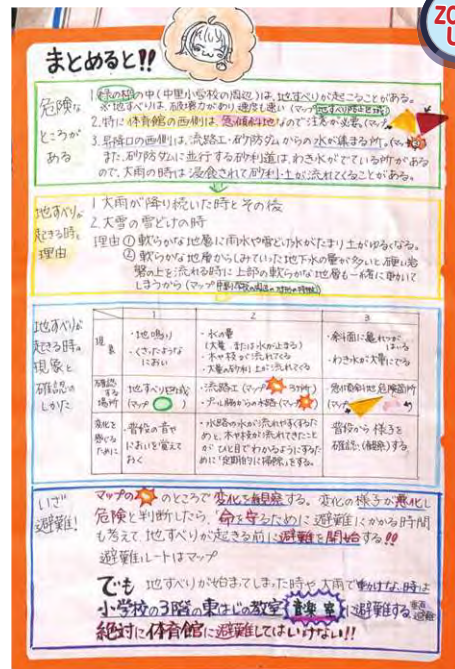 ZO
U
まとめると!!
危険な
ところが
ある
1.緑の線の中(中里小学校の周辺)は、地すべりが起こることがある。
※地すべりは、破壊力があり、速度も速い(マップ地すべり防止区域)
2.特に体育館の西側は、急傾斜地なので注意が必要。(マップ
3.昇降口の西側は、流路工・砂防ダムからの水が集まる所。(マップ
また、砂防ダムに並行する砂利道は、わき水がでている所がある
ので、大雨の時は浸食されて砂利・土が流れてくることがある。
地すべりが
起きる時と
理由
1 大雨が降り続いた時とその後
2.大雪の雪どけの時
理由 ① 軟らかな地層に雨水や雪どけ水がたまり土がゆるくなる。
② 軟らかな地層からしみていった地下水の量が多いと硬い岩
盤の上を流れる時に上部の軟らかな地層も一緒に動いて
しまうから(マップ
地すべりが
起きる時の
現象と
確認の
しかた
1
2
3
現象
・地鳴り
・くさったような
におい
・水の量
(大量・または水が止まる)
・木や枝が流れてくる
・大量の砂利・土が流れてくる
・斜面に亀れつが
はいる
・わき水が大量にでる
確認
する
場所
地すべり地域
(マップ
・流路工(マップ 3ヶ所)
・プール脇からの水路(マップ
急傾斜地危険箇所
(マップ
変化を
感じる
ために
普段の音や
においを覚えて
おく
・水路の水が流れやすくするた
めと、木や枝が流れてきたこと
が ひと目でわかるようにするた
めに「定期的に掃除」をする。
普段から様子を
確認(観察)する
いざ
避難!
マップの のところで変化を観察する。変化の様子が悪化し
危険と判断したら、「命を守るために避難にかかる時間
も考えて、地すべりが起きる前に避難を開始する!!
避難ルートはマップ
でも 地すべりが始まってしまった時や、大雨で動けない時は
小学校の3階の東はじの教室(音楽室)に避難する 垂直避難
絶対に体育館に避難してはいけない!!